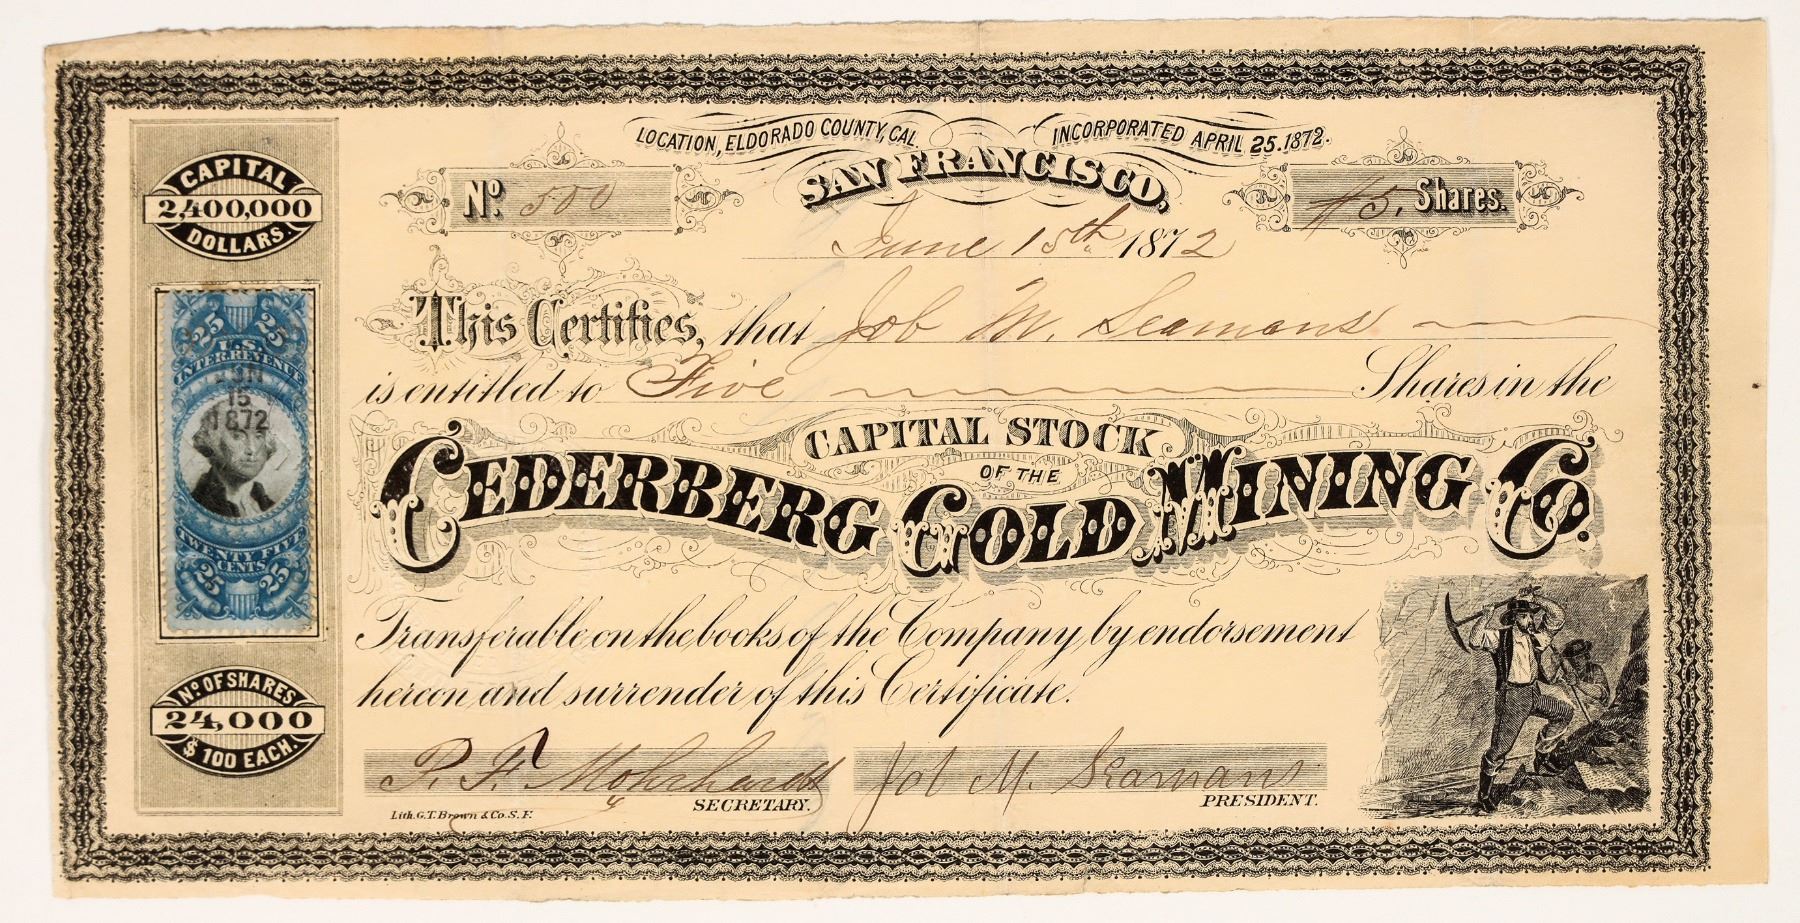 LOCATION, ELDORADO COUNTY, CAL.
INCORPORATED APRIL 25. 1872.
SAN FRANCISCO,
No. 500
5. Shares.
June 15th. 1872
This Certifies, that Job M. Seamans
is entitled to Five Shares in the
CAPITAL STOCK
OF THE
CEDERBERG GOLD MINING Co.
Transferable on the books of the Company, by endorsement
hereon and surrender of this Certificate.
P. F. Mohrhardt
SECRETARY.
Job M. Seamans
PRESIDENT.
Lith. G. T. Brown & Co. S. F.
CAPITAL
2,400,000
DOLLARS.
25 25
U.S.
INTER. REVENUE
JUN
15
1872
TWENTY FIVE
CENTS
25 25
No. OF SHARES
24,000
$ 100 EACH.